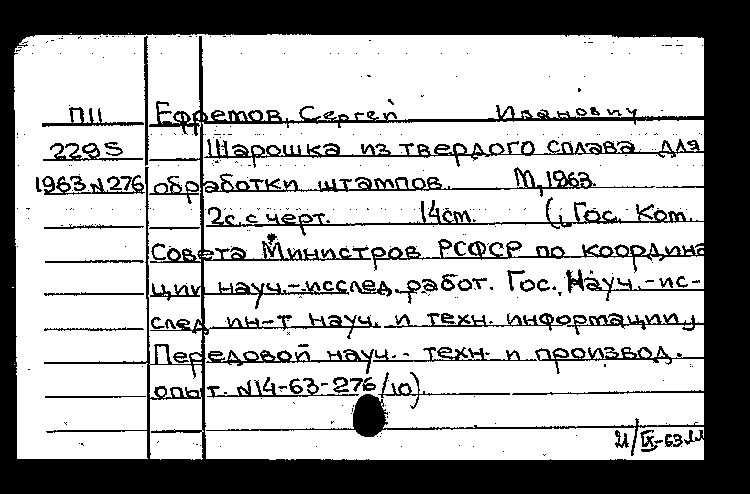 П11 Ефремов, Сергей Иванович
2295 Шарошка из твердого сплава для
1963 N276 обработки штампов. М, 1963.
2с. с черт. 14см. (, Гос. Ком.
Совета Министров РСФСР по координа
ции науч.-исслед. работ. Гос. Науч.-ис-
след ин-т науч. и техн. информации,
Передовой науч.- техн. и производ.
опыт. N14-63-276/10).
21/IX-63